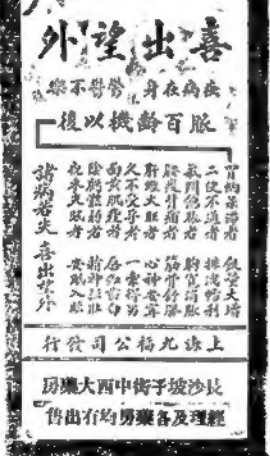 喜出望外
疾病在身 不樂
服百齡機以後
胃納呆滯者 飲食大增
二便不通者 排洩暢利
氣阻飽脹者 胸寬消脹
腰痠背痛者 筋骨舒服
肝鬱火旺者 心神安寧
久不受孕者 一索得男
面黃肌瘦者
陰虧體弱者 精神強壯
夜來失眠者 安眠入
諸病若失 喜出望外
上海九福公司發行
長沙坡子街中西大藥房
經理及各藥房均有出售